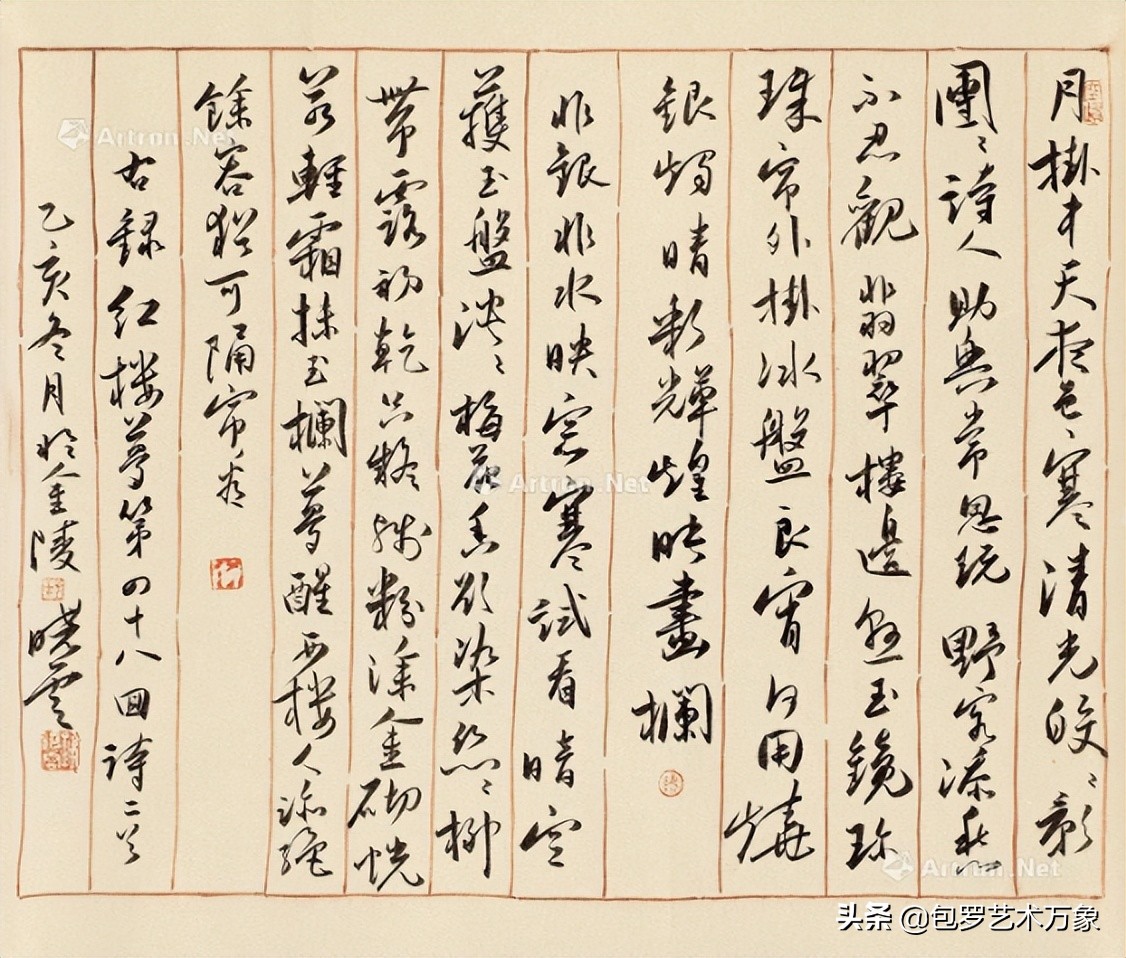 月掛中天夜色寒清光皎〻影
團〻詩人助興常思玩野客添愁
不忍觀翡翠樓邊懸玉鏡珍
珠帘外掛冰盤良宵何用燒
銀燭晴彩輝煌映畫欄
非銀非水映窗寒試看晴空
護玉盤淡〻梅花香欲染絲〻柳
帶露初乾只疑殘粉塗金砌恍
若輕霜抹玉欄夢醒西楼人跡絕
餘容猶可隔帘看
右録红楼夢第四十八回詩二首
乙亥冬月於金陵 曉雲
Artron.Net
Artron.Net
Artron.Net
头条 @包罗艺术万象